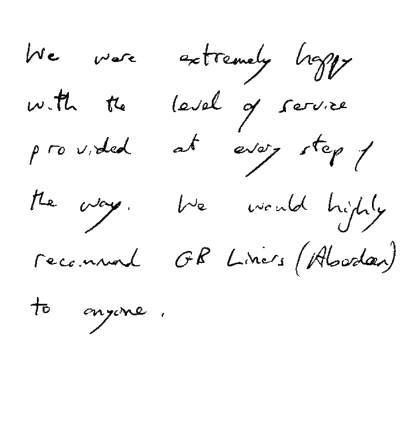 We were extremely happy
with the level of service
provided at every step of
the way. We would highly
recommend GB Liners (Aberdeen)
to anyone.